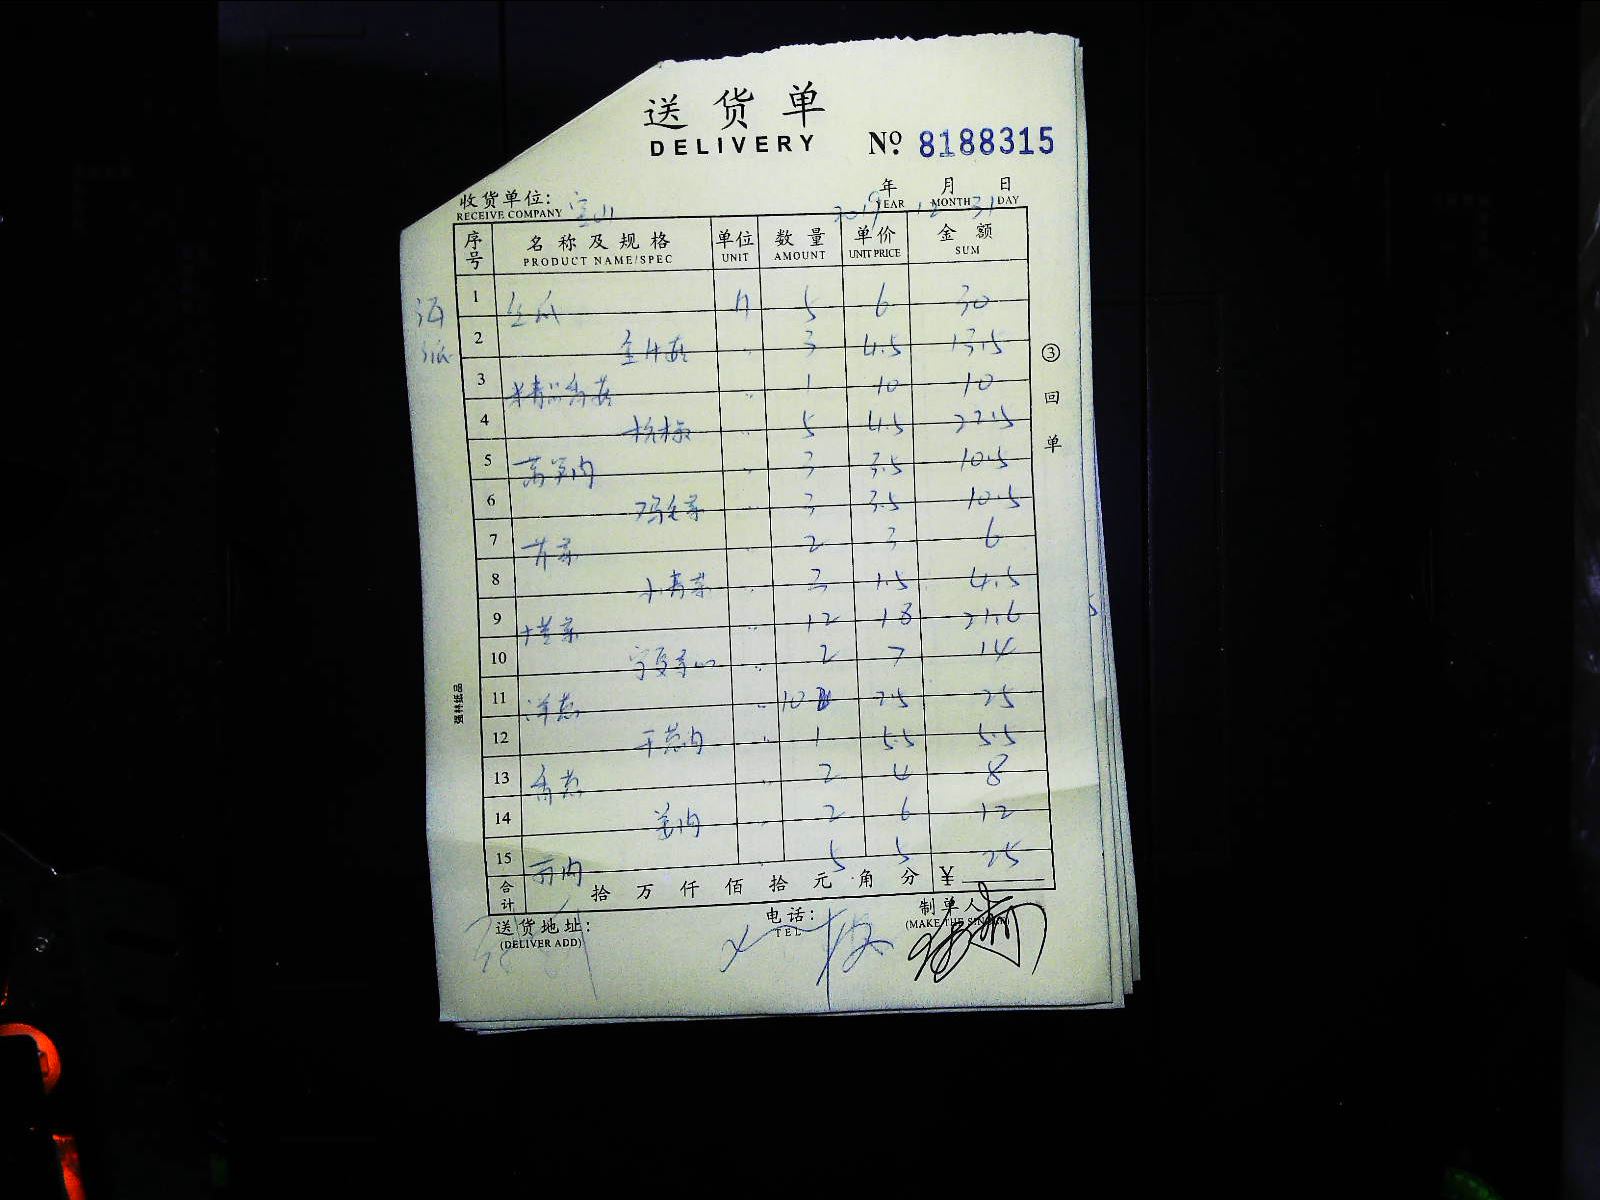 送货单
DELIVERY № 8188315
收货单位: 宝山 年 月 日
RECEIVE COMPANY 2019 YEAR 12 MONTH 31 DAY
序号 名称及规格 单位 数量 单价 金额
PRODUCT NAME/SPEC UNIT AMOUNT UNIT PRICE SUM
1 丝瓜 5 6 30
2 金针菇 3 4.5 13.5
3 精品香菇 1 10 10
4 杭椒 5 4.5 22.5
5 莴笋肉 3 3.5 10.5
6 鸡毛菜 3 3.5 10.5
7 芹菜 2 3 6
8 小青菜 3 1.5 4.5
9 塔菜 12 1.8 21.6
10 宁夏菜心 2 7 14
11 洋葱 10 2.5 25
12 干葱肉 1 5.5 5.5
13 香葱 2 4 8
14 姜肉 2 6 12
15 5 5 25
合计 拾 万 仟 佰 拾 元 角 分 ¥
送货地址: 电话: 制单人
(DELIVER ADD) TEL
③回单
强林纸品